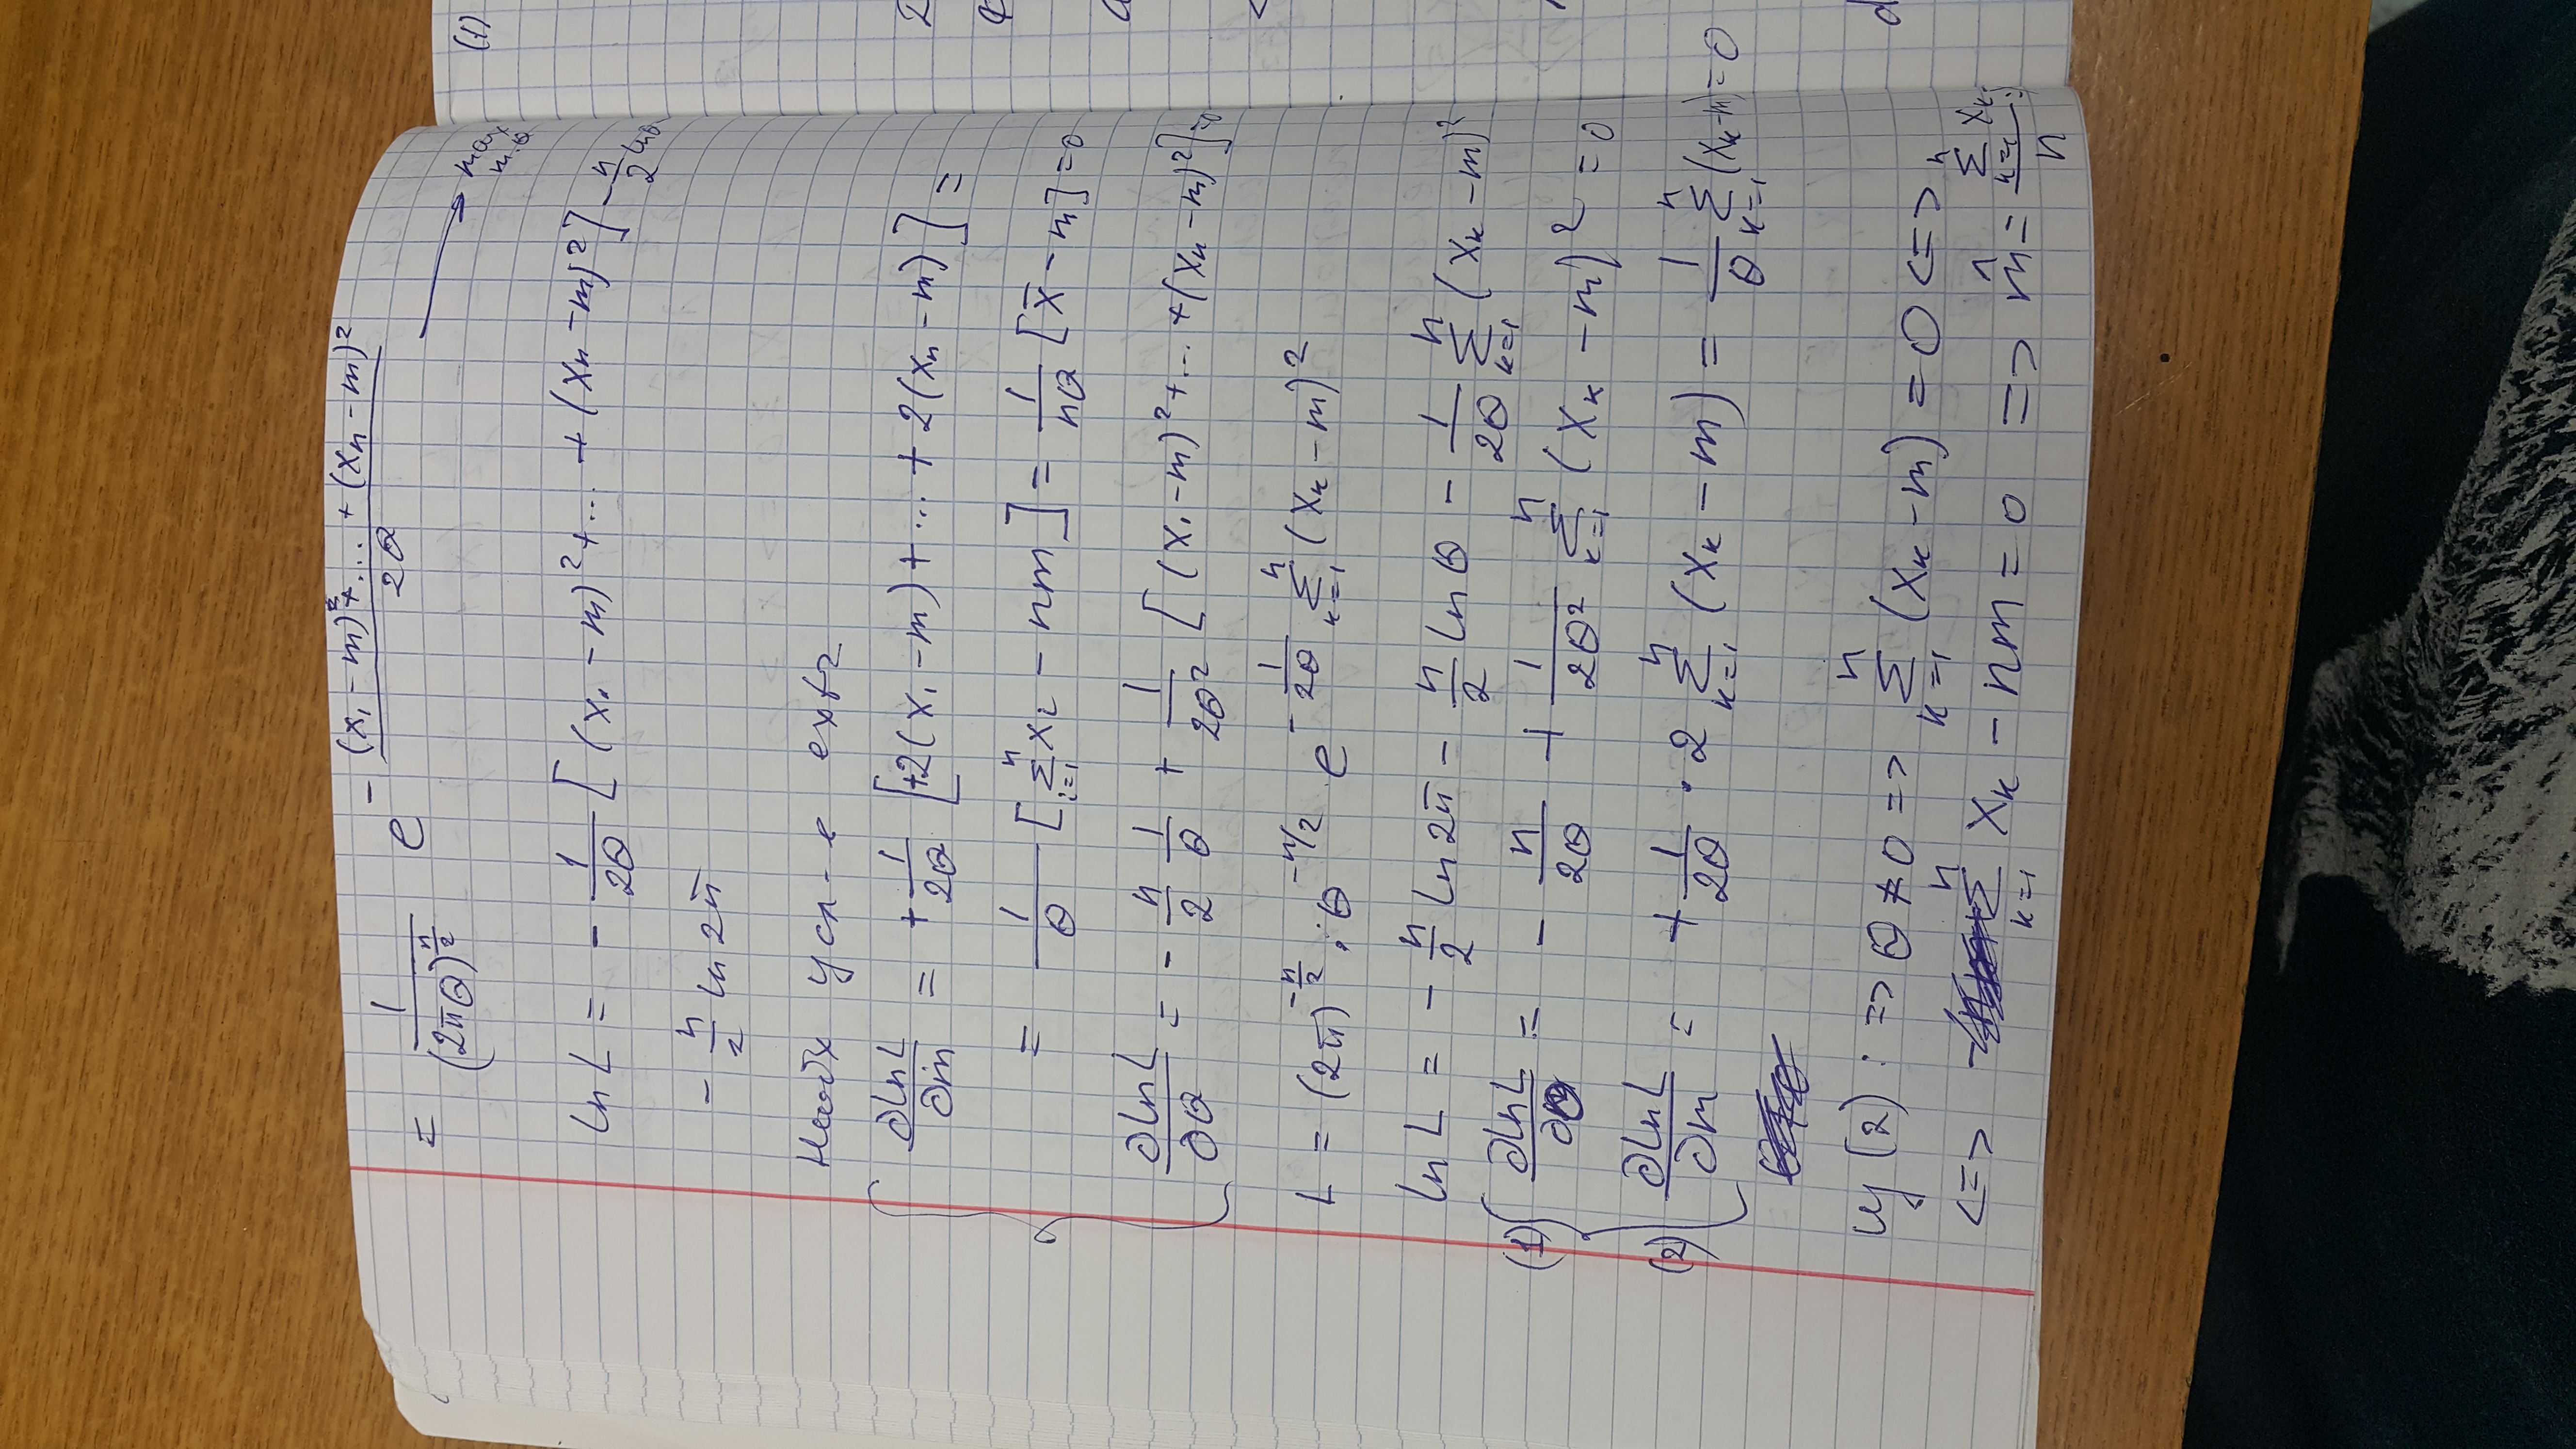 = 1/(2πθ)^(n/2) e^(-((x₁ - m)² + ... + (xₙ - m)²)/(2θ)) → max m, θ
(1)
ln L = - 1/(2θ) [(x₁ - m)² + ... + (xₙ - m)²] - n/2 ln θ
- n/2 ln 2π
Необх усл-е extr
{ ∂lnL/∂m = + 1/(2θ) [+2(x₁ - m) + ... + 2(xₙ - m)] =
= 1/θ [∑_{i=1}^{n} xᵢ - nm] = 1/(nθ) [x̄ - m] = 0
∂lnL/∂θ = - n/2 1/θ + 1/(2θ²) [(x₁ - m)² + ... + (xₙ - m)²] = 0
L = (2π)^(-n/2) · θ^(-n/2) · e^(- 1/(2θ) ∑_{k=1}^{n} (xₖ - m)²)
ln L = - n/2 ln 2π - n/2 ln θ - 1/(2θ) ∑_{k=1}^{n} (xₖ - m)²
(1) { ∂lnL/∂θ = - n/(2θ) + 1/(2θ²) ∑_{k=1}^{n} (xₖ - m)² = 0
(2) ∂lnL/∂m = + 1/(2θ) · 2 ∑_{k=1}^{n} (xₖ - m) = 1/θ ∑_{k=1}^{n} (xₖ - m) = 0
из (2): => θ ≠ 0 => ∑_{k=1}^{n} (xₖ - m) = 0 <=>
<=> ∑_{k=1}^{n} xₖ - nm = 0 => m̂ = (∑_{k=1}^{n} xₖ)/n